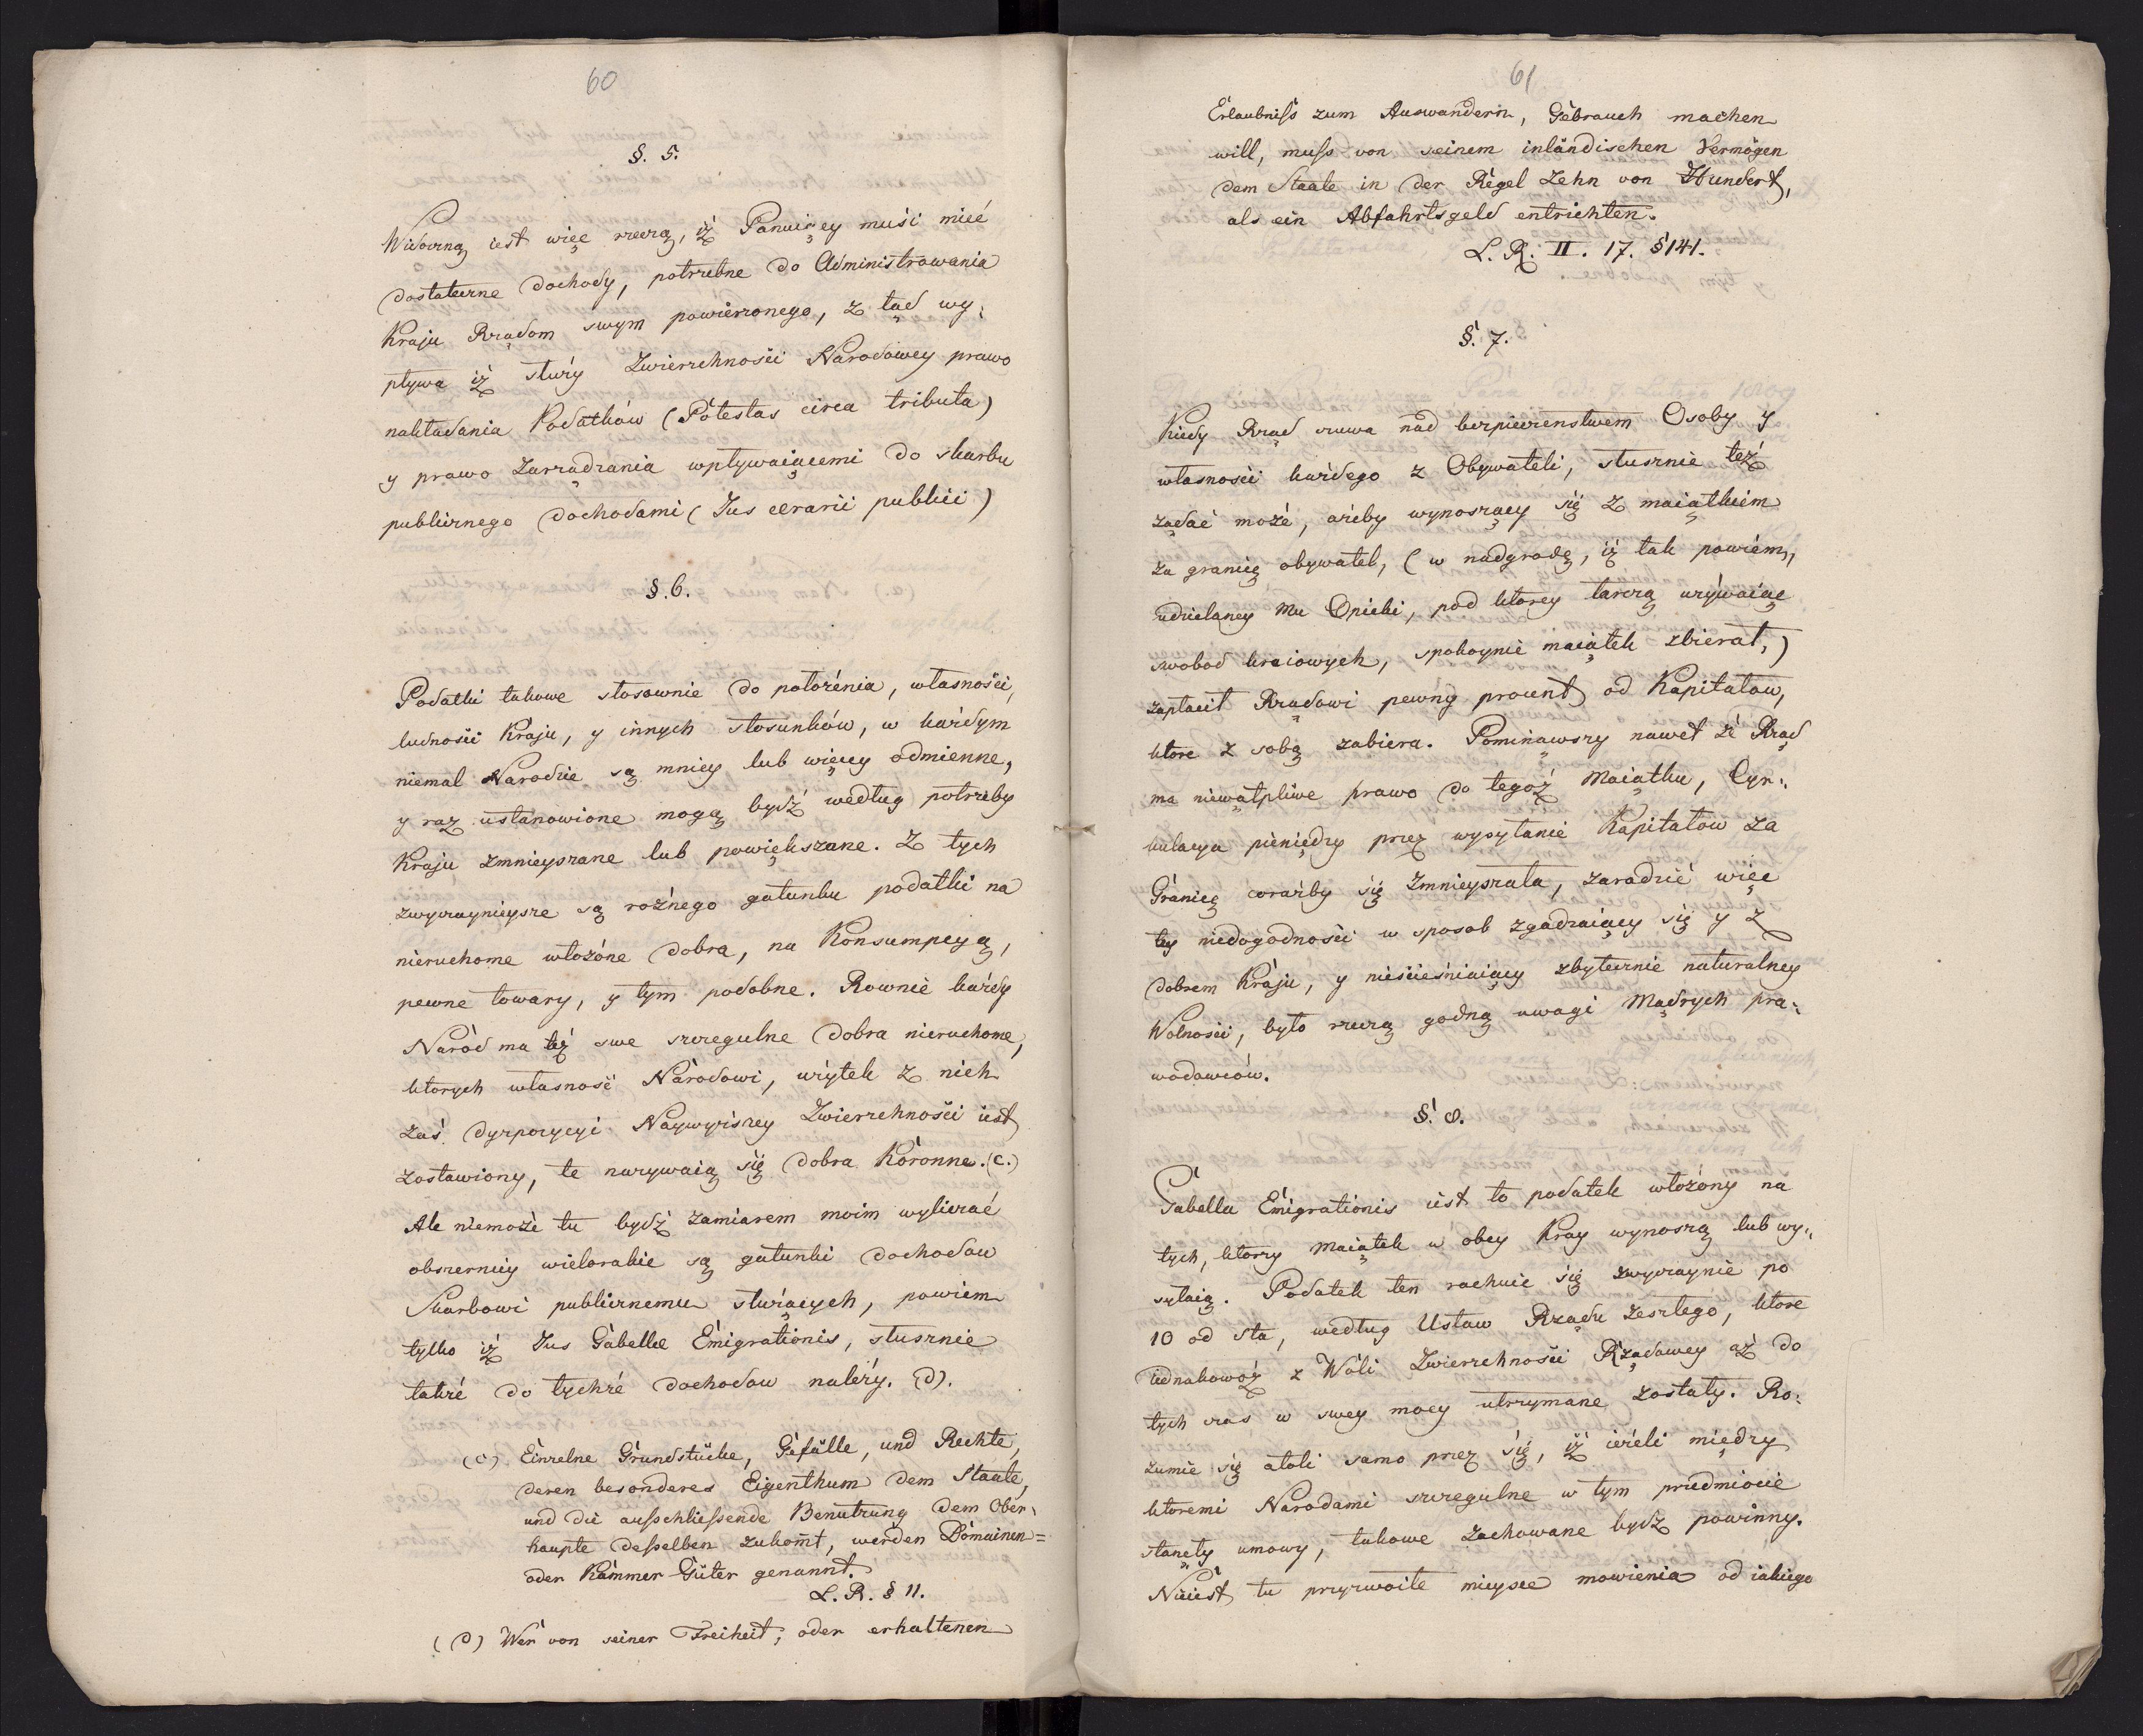 60
§. 5.
Widoczną iest więc rzeczą, iż Panuiący musi mieć
dostateczne dochody, potrzebne do Administrowania
Kraju Rządom swym powierzonego, z tąd wy:
pływa iż służy Zwierzchności Narodowey prawo
nakładania Podatków (Potestas circa tributa)
y prawo zarządzania wpływaiącemi do skarbu
publicznego dochodami (Jus aerarii publici)
§. 6.
Podatki takowe stosownie do położenia, własności,
ludności Kraju, y innych stosunków, w każdym
niemal Narodzie są mniey lub więcey odmienne,
y raz ustanowione mogą bydź według potrzeby
Kraju zmnieyszane lub powiększane. Z tych
zwyczaynieysze są rożnego gatunku podatki na
nieruchome włożone dobra, na Konsumpcyą,
pewne towary, y tym podobne. Rownie każdy
Naród ma też swe szczegulne dobra nieruchome,
ktorych własność Narodowi, użytek z nich
zaś dyspozycyi Naywyższey Zwierzchności iest
zostawiony, te nazywaią się dobra Koronne. (c.)
Ale niemoże tu bydź zamiarem moim wyliczać
obszerniey wielorakie są gatunki dochodow
Skarbowi publicznemu służących, powiem
tylko iż Jus Gabellae Emigrationis, słusznie
także do tychże dochodow należy. (d).
(c) Einzelne Grundstücke, Gefälle, und Rechte,
deren besonderes Eigenthum dem Staate,
und die ausschliessende Benutzung dem Ober:
haupte desselben zukom̄t, werden Domainen=
oder Kammer-Güter genannt.
L. R. § 11.
(d) Wer von seiner Freiheit, oder erhaltenen
61
Erlaubniss zum Auswandern, Gebrauch machen
will, muss von seinem inländischen Vermögen
dem Staate in der Regel zehn von Hundert,
als ein Abfahrtsgeld entrichten.
L. R. II. 17. § 141.
§. 7.
Kiedy Rząd czuwa nad bezpieczenstwem Osoby y
własności każdego z Obywateli, słusznie też
żądać może, ażeby wynoszący się z maiątkiem
za granicę obywatel, (w nadgrodę, iż tak powiem,
udzielaney mu Opieki, pod ktorey tarczą używaiąc
swobod kraiowych, spokoynie maiątek zbierał,)
zapłacił Rządowi pewny procent od Kapitałow,
ktore z sobą zabiera. Pominąwszy nawet że Rząd
ma niewątpliwe prawo do tegoż Maiątku, Cyr:
kulacya pieniędzy przez wysyłanie Kapitałow za
Granicę corażby się zmnieyszała, zaradzić więc
tey niedogodności w sposob zgadzaiący się y z
dobrem Kraju, y nieścieśniaiący zbytecznie naturalney
Wolności, było rzeczą godną uwagi Mądrych pra:
wodawców.
§. 8.
Gabella Emigrationis iest to podatek włożony na
tych, ktorzy Maiątek w obcy Kray wynoszą lub wy:
syłaią. Podatek ten rachuie się zwyczaynie po
10 od sta, według Ustaw Rządu Zeszłego, ktore
iednakowoż z Woli Zwierzchności Rządowey aż do
tych czas w swey mocy utrzymane zostały. Ro:
zumie się atoli samo przez się, iż ieżeli między
ktoremi Narodami szczegulne w tym przedmiocie
stanęły umowy, takowe zachowane bydź powinny.
Nieiest tu przyzwoite mieysce mowienia od iakiego